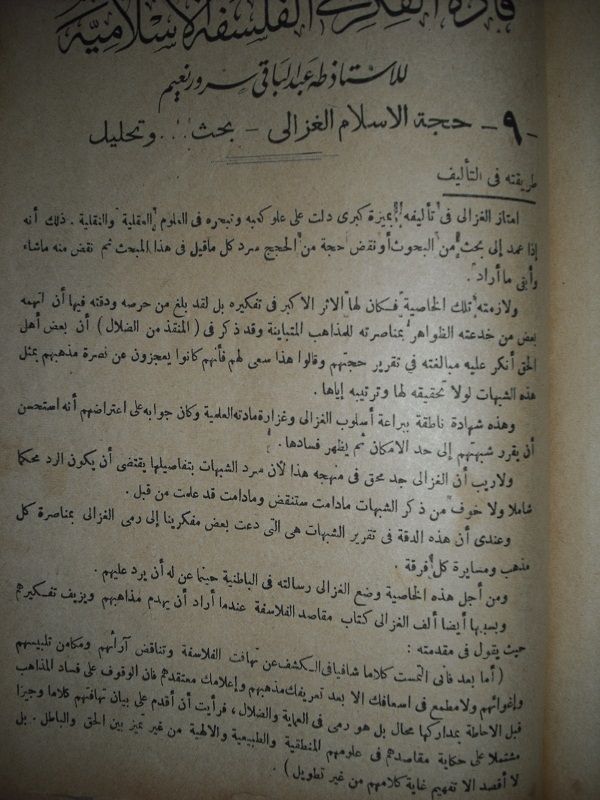 قادة الفكر في الفلسفة الاسلامية
للاستاذ طه عبد الباقي سرور نعيم
- ٩ - حجة الاسلام الغزالى - بحث ... وتحليل
طريقته فى التأليف
امتاز الغزالى فى تأليفه بميزة كبرى دلت على علو كعبه وتبحره فى العلوم العقلية والنقلية . ذلك أنه
إذا عمد إلى بحث من البحوث أو نقض حجة من الحجج سرد كل ماقيل فى هذا المبحث ثم نقض منه ماشاء
وأبقى ما أراد .
ولازمته تلك الخاصية فكان لها الاثر الاكبر فى تفكيره بل لقد بلغ من حرصه ودقته فيها أن اتهمه
بعض من خدعته الظواهر بمناصرته للمذاهب المتباينة وقد ذكر فى ( المنقذ من الضلال ) أن بعض أهل
الحق أنكر عليه مبالغته فى تقرير حجتهم وقالوا هذا سعى لهم فأنهم كانوا يعجزون عن نصرة مذهبهم بمثل
هذه الشبهات لولا تحقيقه لها وترتيبه إياها .
وهذه شهادة ناطقة ببراعة أسلوب الغزالى وغزارة مادته العلمية وكان جوابه على اعتراضهم أنه استحسن
أن يقرر شبهتهم إلى حد الامكان ثم يظهر فسادها .
ولاريب أن الغزالى جد محق فى منهجه هذا لأن سرد الشبهات بتفاصيلها يقتضى أن يكون الرد محكما
شاملا ولا خوف من ذكر الشبهات مادامت ستنقض ومادامت قد علمت من قبل .
وعندى أن هذه الدقة فى تقرير الشبهات هى التى دعت بعض مفكرينا إلى رمى الغزالى بمناصرة كل
مذهب ومسايرة كل فرقة .
ومن أجل هذه الخاصية وضع الغزالى رسالته فى الباطنية حينما عن له أن يرد عليهم .
وبسببها أيضا ألف الغزالى كتاب مقاصد الفلاسفة عندما أراد أن يهدم مذاهبهم ويزيف تفكيرهم
حيث يقول فى مقدمته :
( أما بعد فانى التمست كلاما شافيا فى الكشف عن تهافت الفلاسفة وتناقض آرائهم ومكامن تلبيسهم
وإغوائهم ولا مطمع فى اسعافك الا بعد تعريفك مذهبهم وإعلامك معتقدهم فان الوقوف على فساد المذاهب
قبل الاحاطة بمداركها محال بل هو رمى فى العماية والضلال ، فرأيت أن أقدم على بيان تهافتهم كلاما وجيزا
مشتملا على حكاية مقاصدهم فى علومهم المنطقية والطبيعية والالهية من غير تميز بين الحق والباطل . بل
لا أقصد الا تفهيم غاية كلامهم من غير تطويل ) .